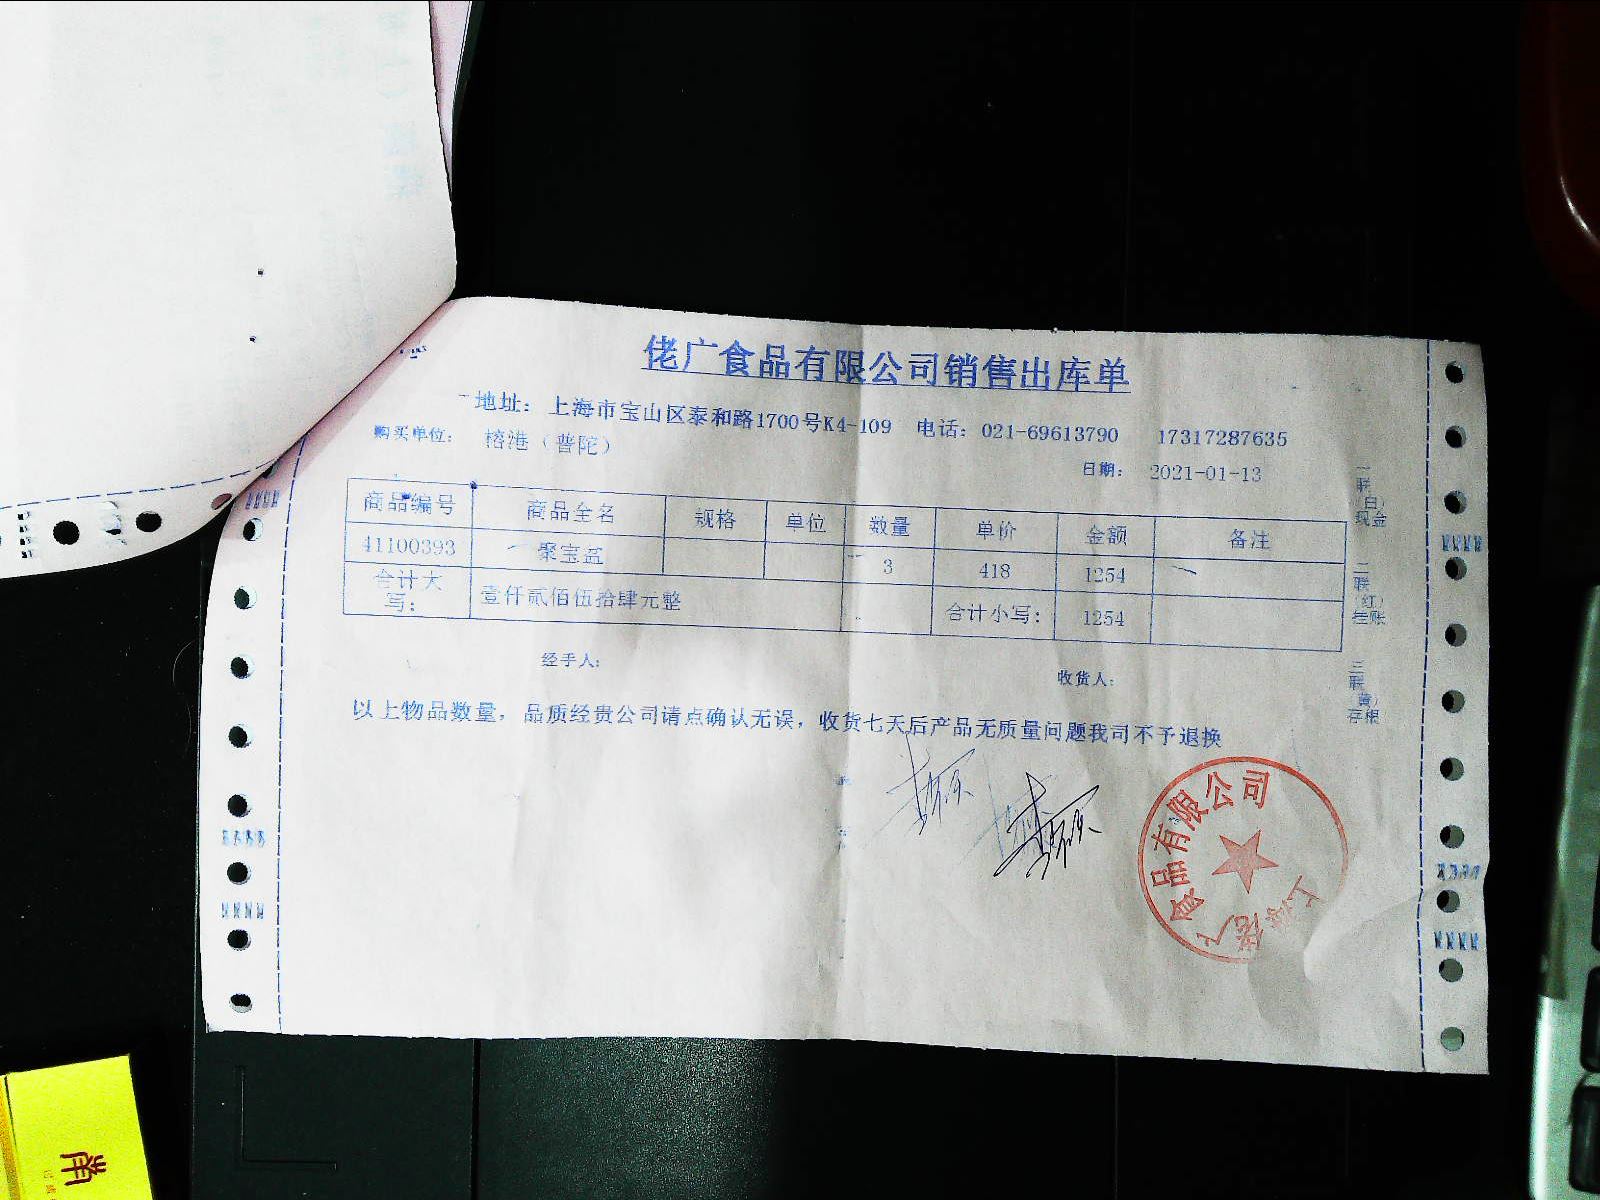 佬广食品有限公司销售出库单
地址：上海市宝山区泰和路1700号K4-109 电话：021-69613790 17317287635
购买单位： 榕港（普陀）
日期： 2021-01-13
商品编号 商品全名 规格 单位 数量 单价 金额 备注
41100393 聚宝盆 3 418 1254
合计大写： 壹仟贰佰伍拾肆元整 合计小写： 1254
经手人： 收货人：
以上物品数量，品质经贵公司请点确认无误，收货七天后产品无质量问题我司不予退换
一联（白）现金
二联（红）挂账
三联（黄）存根
上海佬广食品有限公司